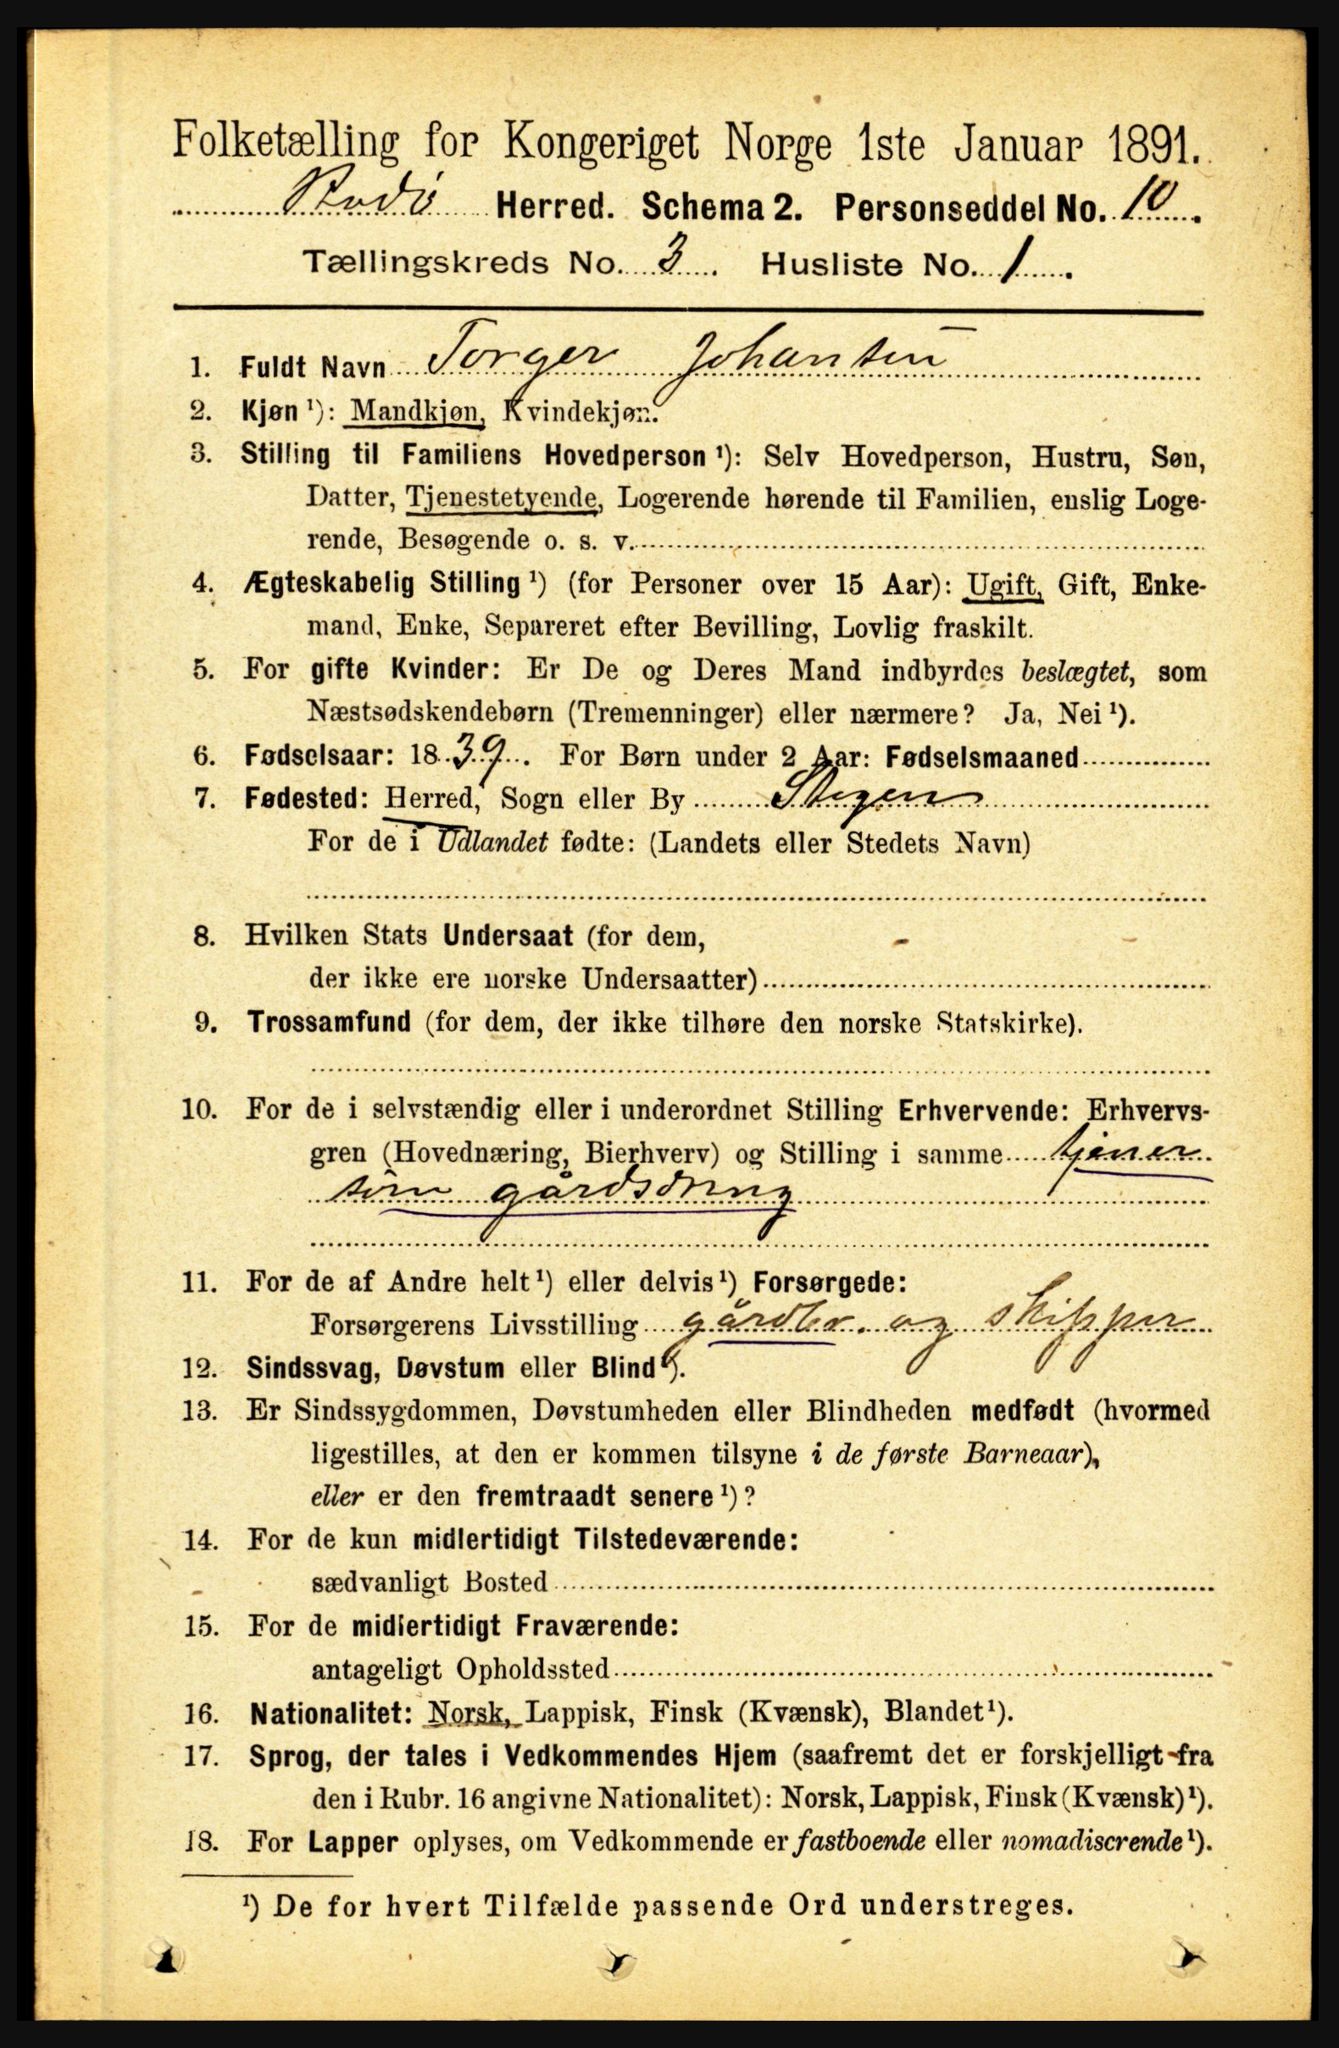 Folketælling for Kongeriget Norge 1ste Januar 1891.
Rødø Herred. Schema 2. Personseddel No. 10.
Tællingskreds No. 3. Husliste No. 1.
1. Fuldt Navn Torger Johansen
2. Kjøn ¹): Mandkjøn, Kvindekjøn.
3. Stilling til Familiens Hovedperson ¹): Selv Hovedperson, Hustru, Søn,
Datter, Tjenestetyende, Logerende hørende til Familien, enslig Loge-
rende, Besøgende o. s. v.
4. Ægteskabelig Stilling ¹) (for Personer over 15 Aar): Ugift, Gift, Enke-
mand, Enke, Separeret efter Bevilling, Lovlig fraskilt.
5. For gifte Kvinder: Er De og Deres Mand indbyrdes beslægtet, som
Næstsødskendebørn (Tremenninger) eller nærmere? Ja, Nei ¹).
6. Fødselsaar: 1839. For Børn under 2 Aar: Fødselsmaaned
7. Fødested: Herred, Sogn eller By Stegen
For de i Udlandet fødte: (Landets eller Stedets Navn)
8. Hvilken Stats Undersaat (for dem,
der ikke ere norske Undersaatter)
9. Trossamfund (for dem, der ikke tilhøre den norske Statskirke).
10. For de i selvstændig eller i underordnet Stilling Erhvervende: Erhvervs-
gren (Hovednæring, Bierhverv) og Stilling i samme tjener
som gårdsdreng
11. For de af Andre helt ¹) eller delvis ¹) Forsørgede:
Forsørgerens Livsstilling gårdbr. og skipper
12. Sindssvag, Døvstum eller Blind ¹).
13. Er Sindssygdommen, Døvstumheden eller Blindheden medfødt (hvormed
ligestilles, at den er kommen tilsyne i de første Barneaar),
eller er den fremtraadt senere ¹)?
14. For de kun midlertidigt Tilstedeværende:
sædvanligt Bosted
15. For de midlertidigt Fraværende:
antageligt Opholdssted
16. Nationalitet: Norsk, Lappisk, Finsk (Kvænsk), Blandet ¹).
17. Sprog, der tales i Vedkommendes Hjem (saafremt det er forskjelligt fra
den i Rubr. 16 angivne Nationalitet): Norsk, Lappisk, Finsk (Kvænsk) ¹).
18. For Lapper oplyses, om Vedkommende er fastboende eller nomadiserende ¹).
¹) De for hvert Tilfælde passende Ord understreges.